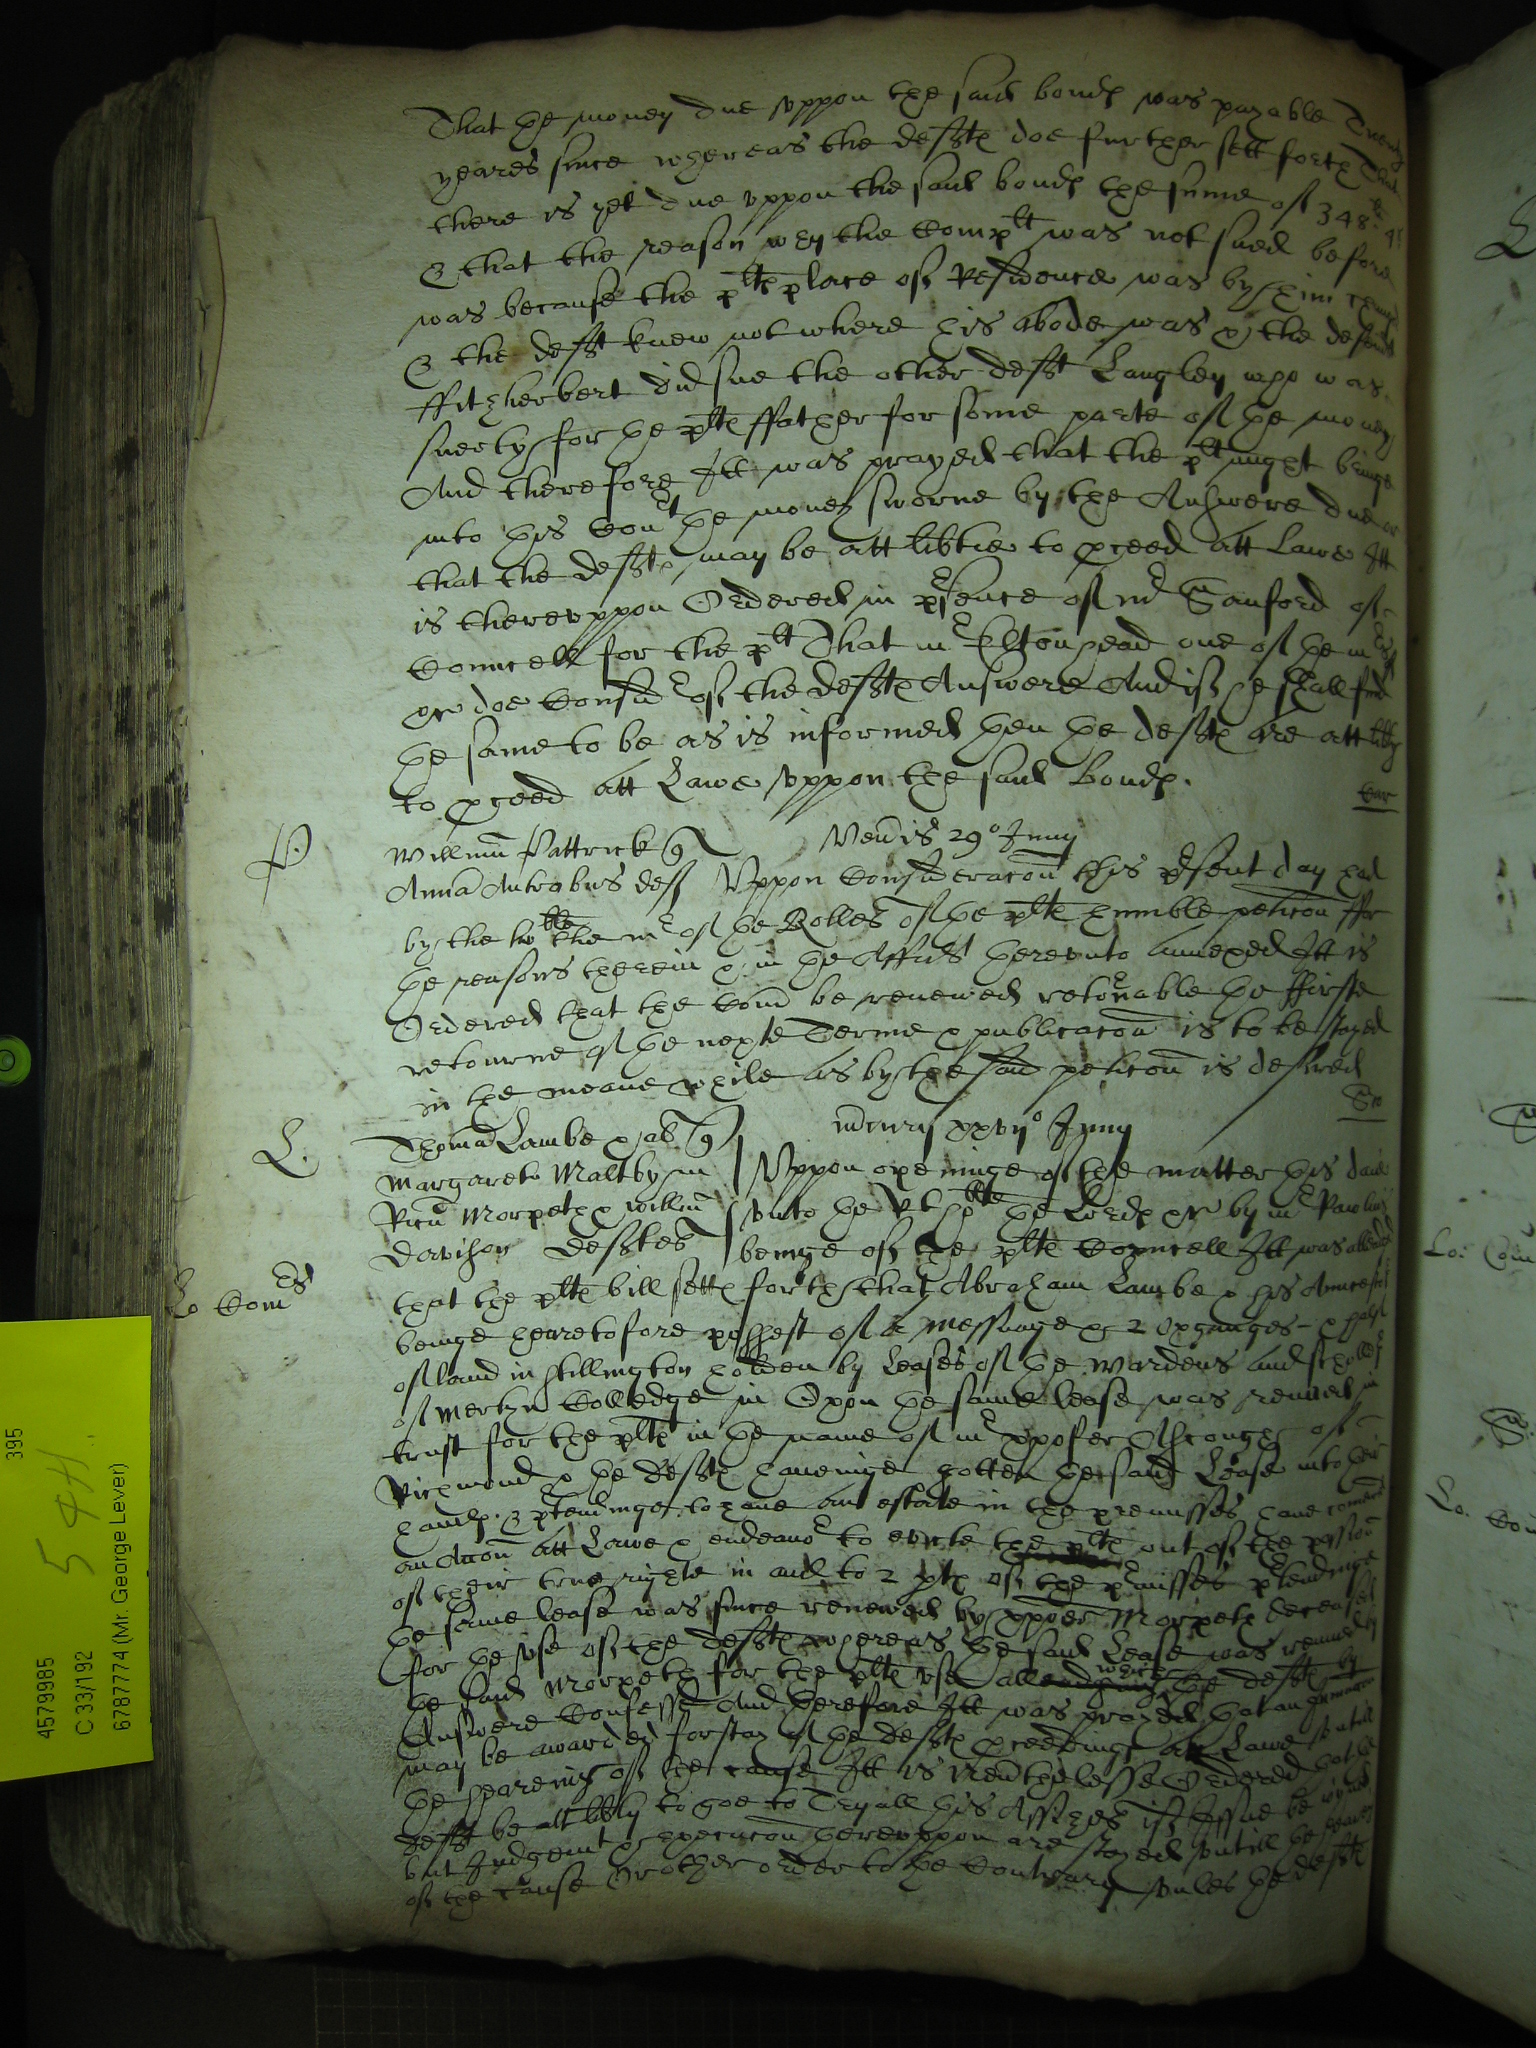 That the money due vppon the said bond was payable Twenty
yeares since whereas the defts doe further sett forth That
there is yet due vppon the said bond the sume of 348li 4s
& that the reason why the Complt was not sued before
was because the plts place of Residence was by him
& the deft knew not where his abode was & the defend
ffitzherbert did sue the other deft Langley who was
suerty for the plts ffather for some parte of the money
And therefore Itt was prayed that the plt might bringe
into this Court the money sworne by the Answere due or
that the defts may be att libtie to pceed att Lawe Itt
is therevppon Ordered in psence of mr Sanford of
Councell for the plt That mr Eltonhead one of the mrs
&c doe Consider of the defts Answere And if he shall find
the same to be as is informed then the defts are att libty
to pceed att Lawe vppon the said Bond.
P. Willimu Pattrick q Veneris 29o Junij
Anna Antrobus def Vppon Consideracon this psent day had
by the ho:ble the mr of the Rolles of the plts humble peticon ffor
the reasons therein & in the Affidt herevnto annexed Itt is
Ordered that the Com be renewed retornable the ffirste
retourne of the nexte Terme & publicacon is to be stayed
in the meane while as by the said peticon is desired
L. Thoma Lambe & al q mercury xxvijo Junij
Margareta Maltby Vppon openinge of the matter this daie
Ricu Morpeth & Willm vnto the Rt hoble the Lords &c by mr Rawlins
Davison Deftes beinge of the plts Councell Itt was alleadged
Lo Comrs that the plts bill setts forth that Abraham Lambe & his Auncestrs
beinge heretofore possest of a Messuage & 2 oxganges & halfe
of land in Stillington holden by Leases of the Wardens and schollers
of Merton Colledge in Oxon the same lease was renued in
trust for the plts in the name of mr xpofer Ascough of
Richmond & the defts haueinge gotten the said Lease into their
hands & ptendinge to haue an estate in the premisses haue comenced
an Accon att Lawe & endeauor to evicte the plts out of the possion
of their true righte in and to 2 pts of the pmisses ptendinge
the same lease was since renewed by xpofer Morpeth deceased
for the vse of the defts whereas the said Lease was renued by
the said Morpeth for the plts vse which the defts by
Answere Confesse And therefore Itt was prayed that an Iniunccon
may be awarded for stay of the defts pceedings att Lawe vntill
the heareing of the cause Itt is neuthelesse Ordered that the
deft be att libty to goe to Tryall this Assizes if Issue be ioyned
but Judgemt & execucon therevppon are stayed vntill the hearing
of the cause or other order to the Contrary vnles the defts
395
4579985
C 33/192
6787774 (Mr. George Lever)